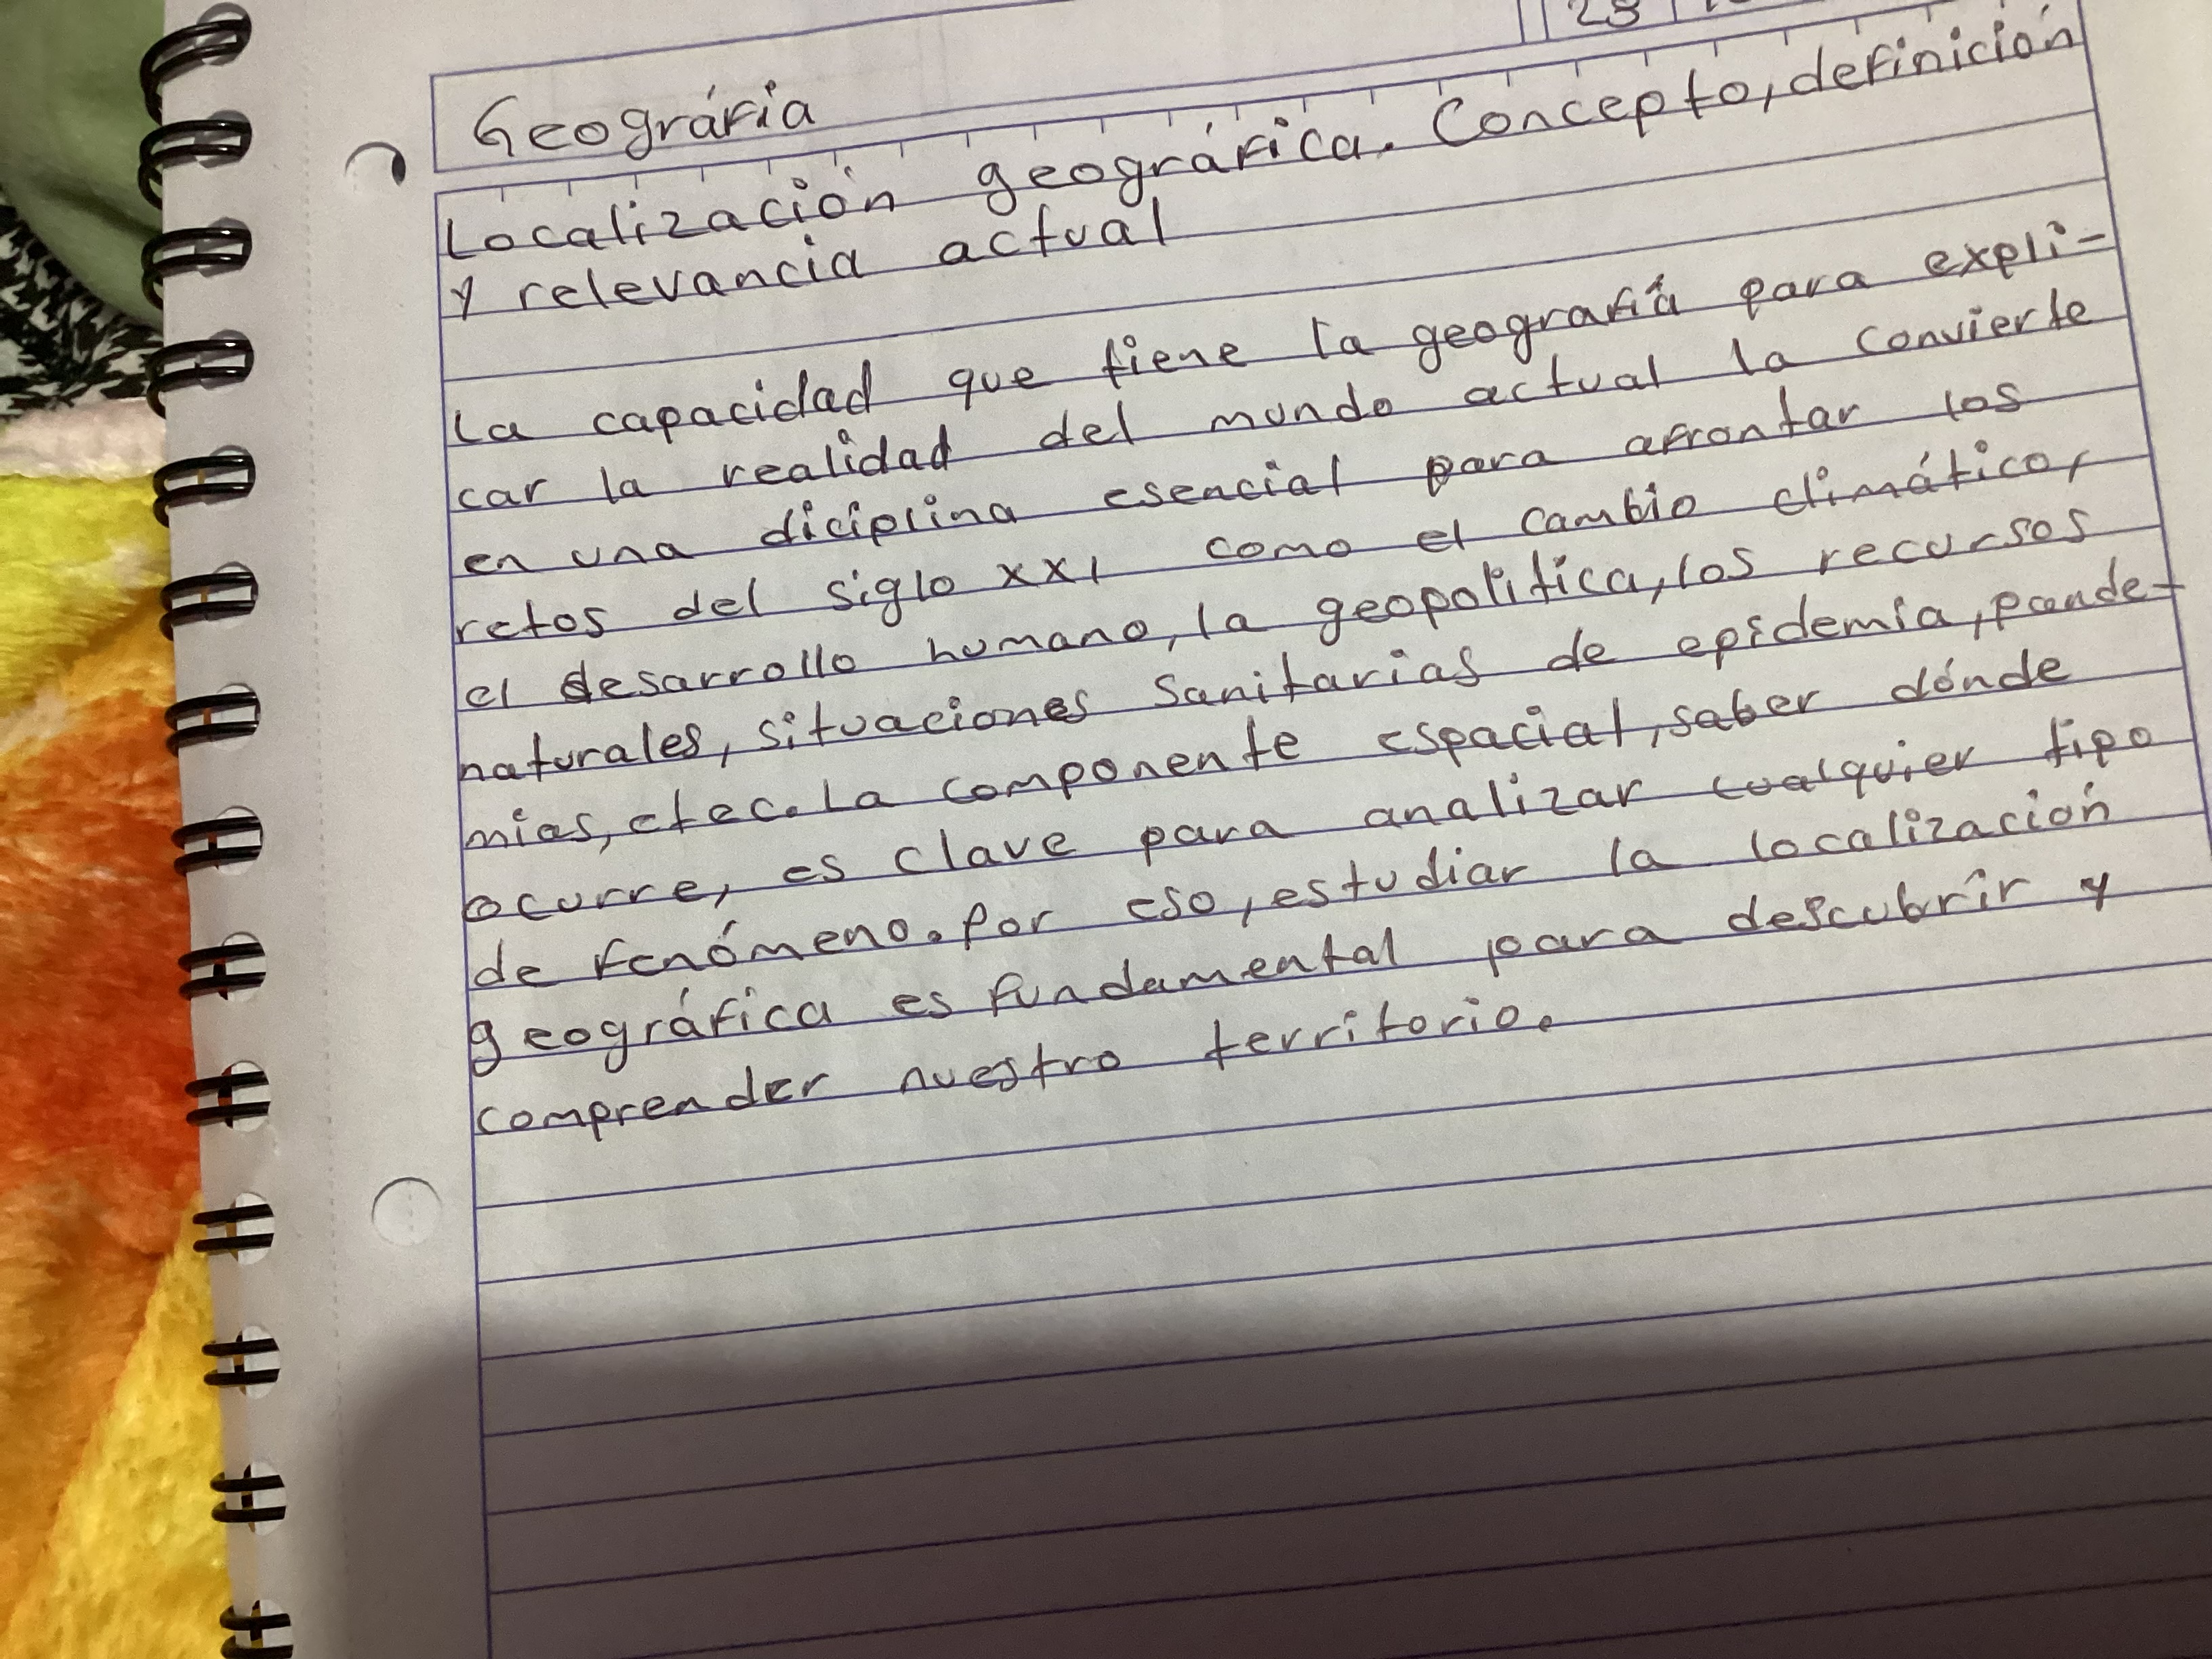 23
Geográfia
Localización geográfica. Concepto, definición
y relevancia actual
La capacidad que tiene la geografía para expli-
car la realidad del mundo actual la convierte
en una diciplina esencial para afrontar los
retos del siglo XXI como el cambio climático,
el desarrollo humano, la geopolitica, los recursos
naturales, situaciones sanitarias de epidemia, pande-
mias, etec. La componente espacial, saber dónde
ocurre, es clave para analizar cualquier tipo
de fenómeno. Por eso, estudiar la localización
geográfica es fundamental para descubrir y
comprender nuestro territorio.